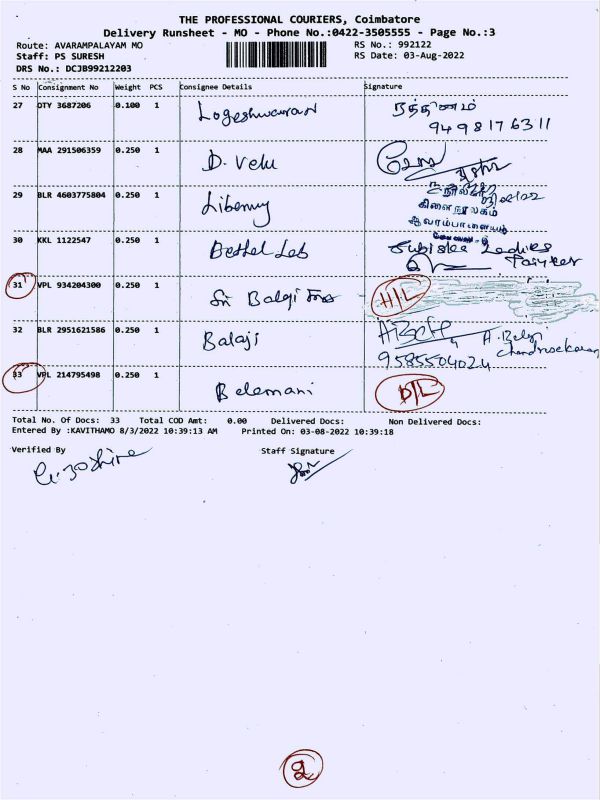 THE PROFESSIONAL COURIERS, Coimbatore
Delivery Runsheet - MO - Phone No.:0422-3505555 - Page No.:3
Route: AVARAMPALAYAM MO RS No.: 992122
Staff: PS SURESH RS Date: 03-Aug-2022
DRS No.: DCJB99212203
S No Consignment No Weight PCS Consignee Details Signature
27 OTY 3687206 0.100 1 Logeshwaran ரத்தினம்
9498176311
28 MAA 291506359 0.250 1 D. Velu
29 BLR 4603775804 0.250 1 Liberary
கிளை நூலகம்
ஆவாரம்பாளையம்
30 KKL 1122547 0.250 1 Bethel Lab Ladies
31 VPL 934204300 0.250 1 Sri Balaji H/L
32 BLR 2951621586 0.250 1 Balaji A. Balaji
9585504024 Chandrasekaran
33 VPL 214795498 0.250 1 Balamani D/L
Total No. Of Docs: 33 Total COD Amt: 0.00 Delivered Docs: Non Delivered Docs:
Entered By :KAVITHAMO 8/3/2022 10:39:13 AM Printed On: 03-08-2022 10:39:18
Verified By Staff Signature
2